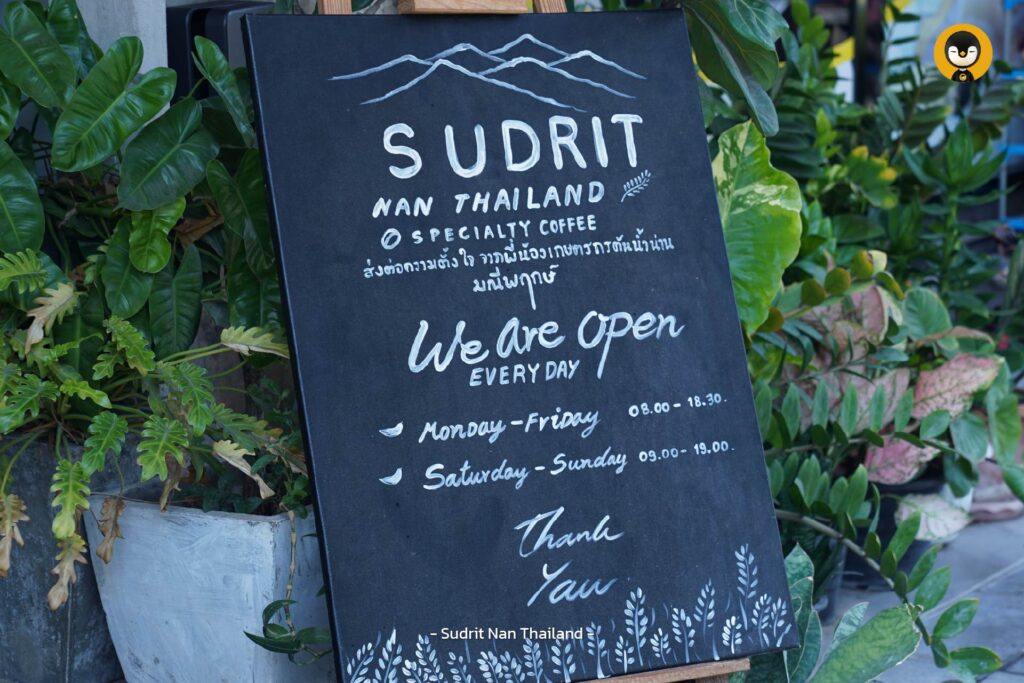 SUDRIT
NAN THAILAND
SPECIALTY COFFEE
ส่งต่อความตั้งใจ จากพี่น้องเกษตรกรต้นน้ำน่าน
มณีพฤกษ์
We Are Open
EVERYDAY
Monday - Friday 08.00 - 18.30.
Saturday - Sunday 09.00 - 19.00.
Thank
You
- Sudrit Nan Thailand -